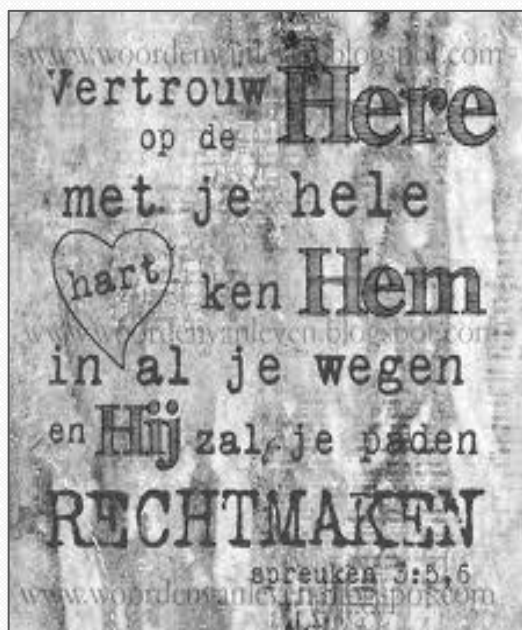 www.woordenvanleven.blogspot.com
Vertrouw Here
op de
met je hele
hart ken Hem
www.woordenvanleven.blogspot.com
in al je wegen
en Hij zal je paden
RECHTMAKEN
spreuken 3:5,6
www.woordenvanleven.blogspot.com